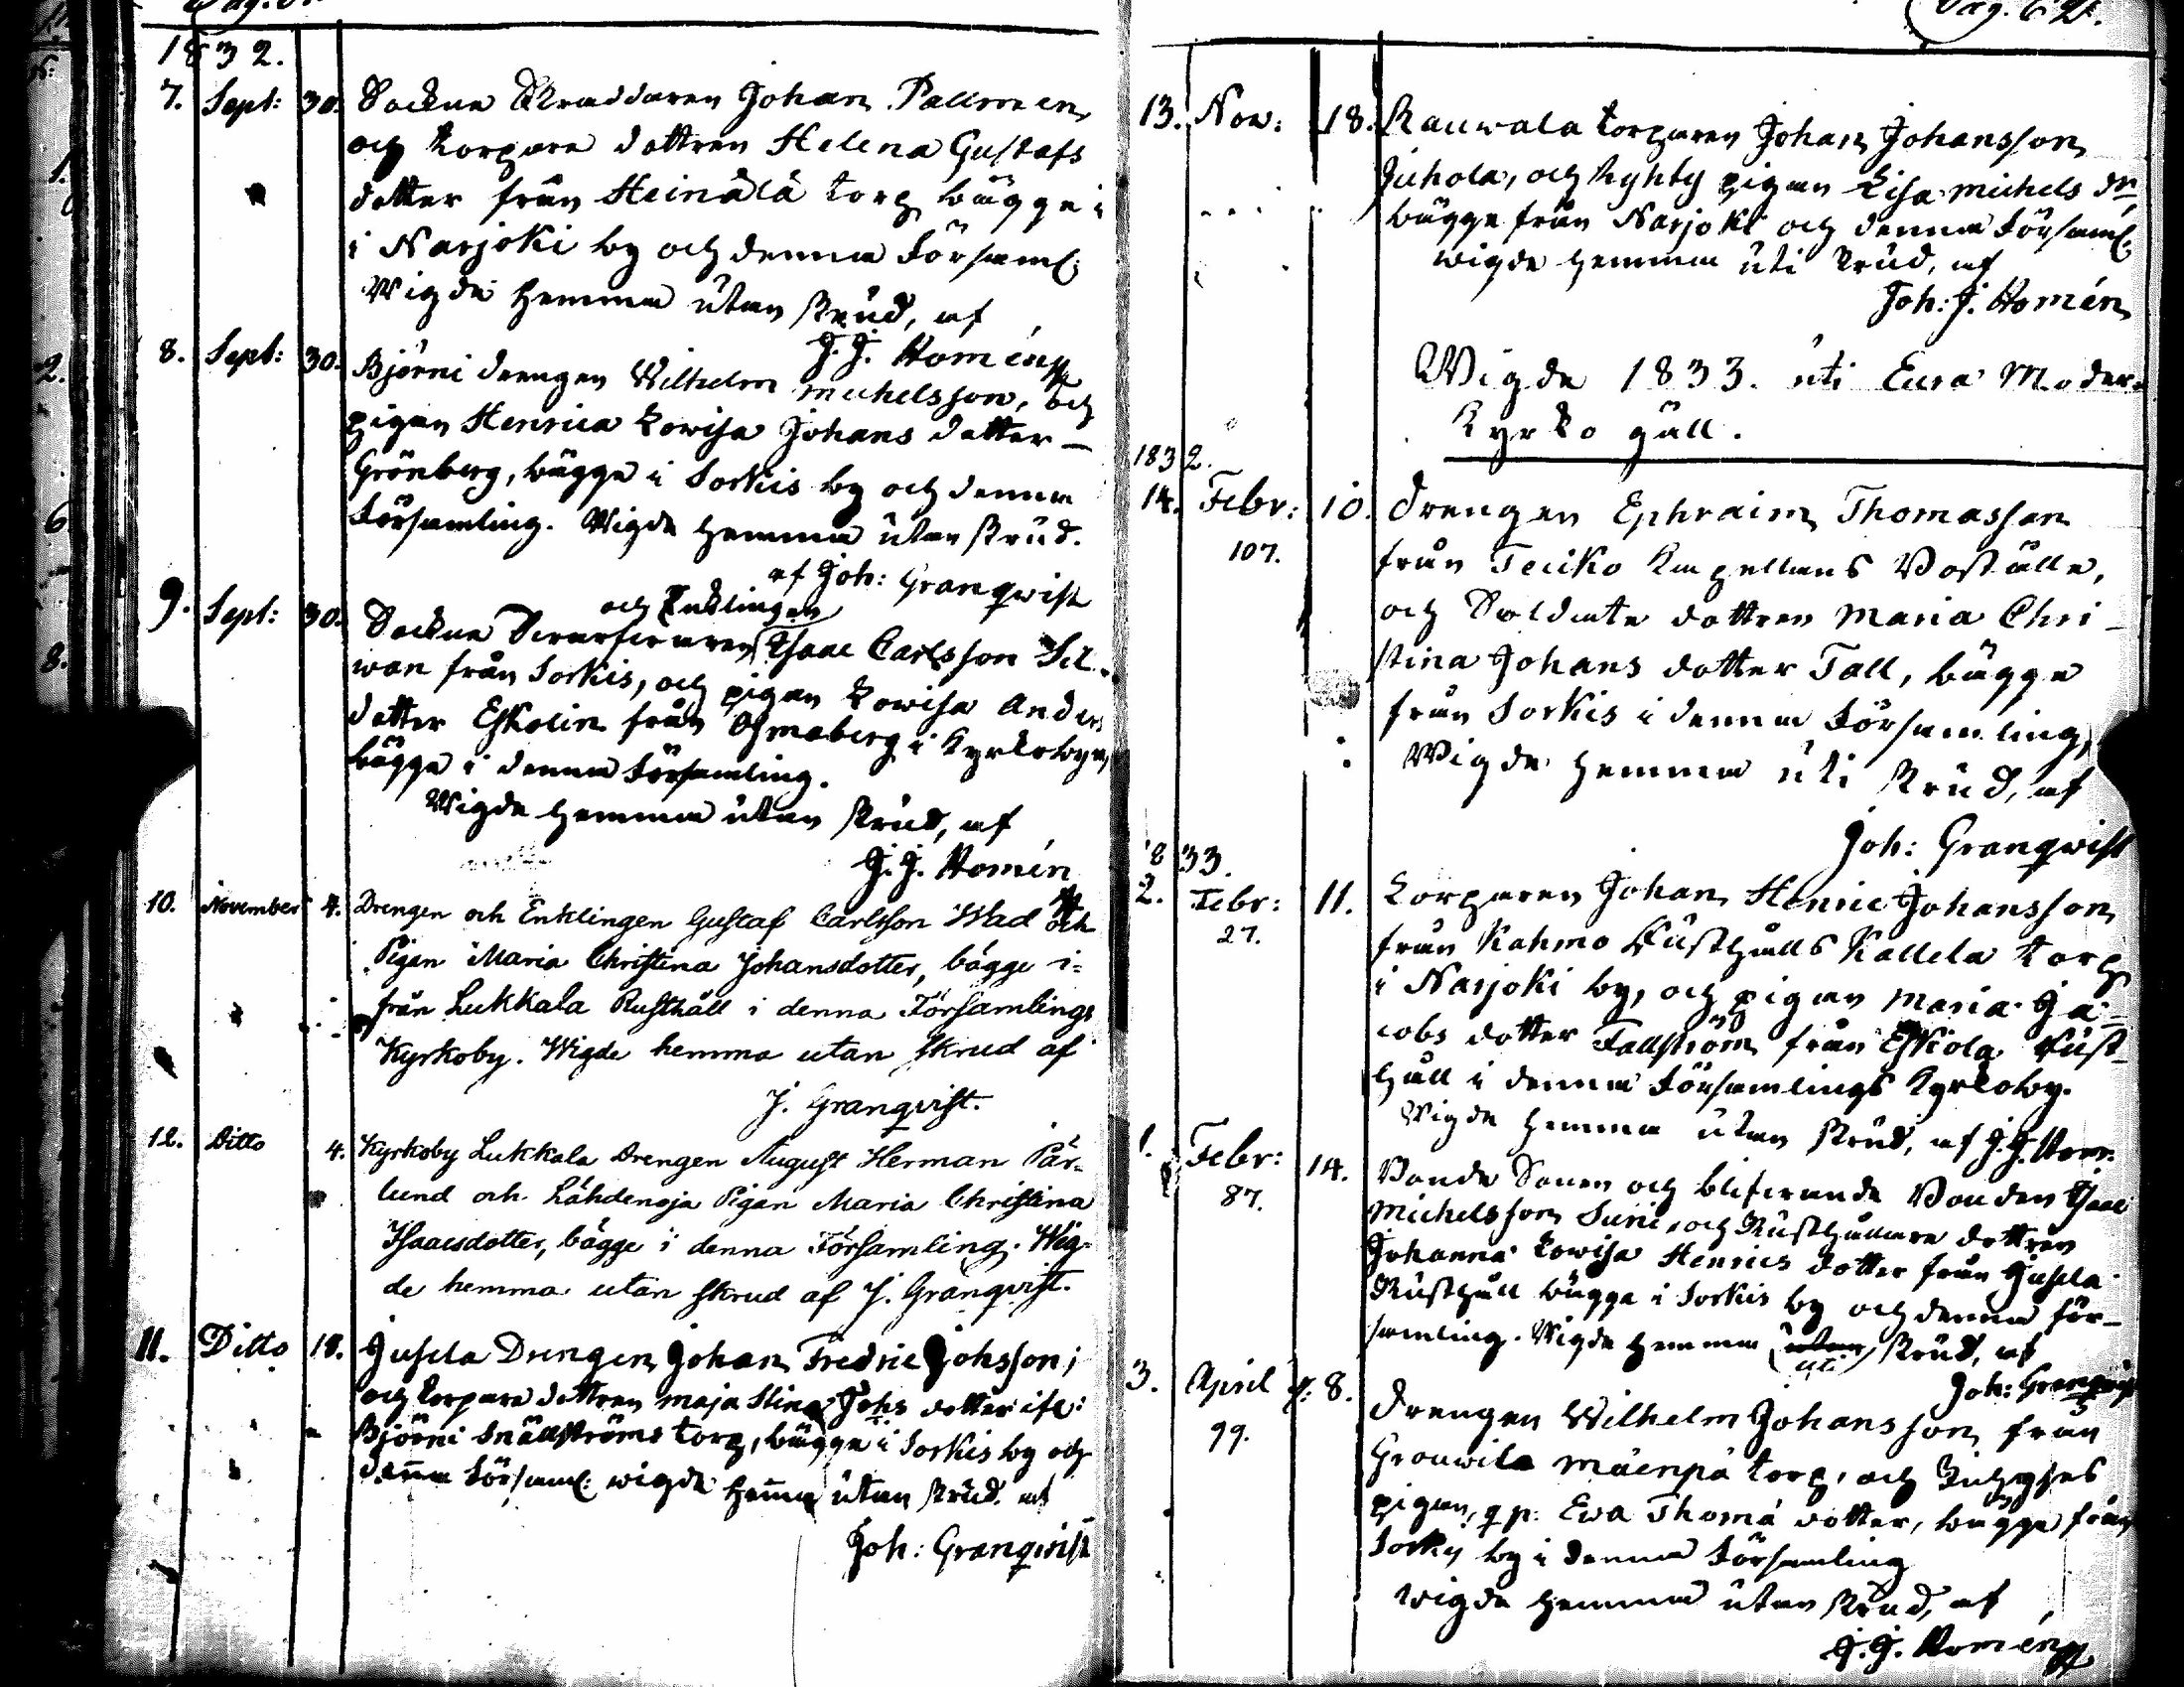 1832.
7. Sept: 30. Sockne Skraddaren Johan Pallmen,
och torpare dottren Helena Gustafs
dotter från Heinälä torp bägge i
i Naarjoki by och denna Församl:
Wigde hemma utan skrud, af
J. J. Homén
8. Sept: 30. Björni drengen Wilhelm Michelsson, och
pigan Henrica Lowisa Johans dotter –
Grönberg, bägge i Sorkis by och denna
Församling. Wigde hemma utan skrud.
af Joh: Granqwist
och Enklingen
9. Sept: 30. Sockne Isaac Carlsson Sil-
wan från Sorkis, och pigan Lowisa Anders
dotter Eskolin från i Kyrkobyn,
bägge i denna Församling.
Wigde hemma utan skrud, af
J. J. Homén
10. November 4. Drengen och Enklingen Gustaf Carlsson Wad och
Pigan Maria Christina Johansdotter, bägge i=
från Lukkala Rusthåll i denna Församlings
Kyrkoby. Wigde hemma utan skrud af
J. Granqvist.
12. Ditto 4. Kyrkoby Lukkala Drengen August Herman Pär-
lund och Lähdenoja Pigan Maria Christina
Isaacsdotter, bägge i denna Församling. Wig-
de hemma utan skrud af J. Granqvist.
11. Ditto 18. Jusela Drengen Johan Fredric Johsson;
och torpare dottren Maja Stina Johs dotter
Björni Snällströms torp, bägge i Sorkis by och
denna Församl: wigde hemma utan skrud af
Joh: Granqwist
Pag. 62.
13. Nov: 18. Rauwala torparen Johan Johansson
Juhola, och Ryhty pigan Lisa Michels dr
bägge från Naarjoki och denna Församl:
wigde hemma uti skrud, af
Joh: J. Homén
Wigde 1833. uti Eura Moder-
Kyrko gäll.
1832.
14. Febr: 10. Drengen Ephraim Thomasson
107. från Teiko Kapellans Boställe,
och Soldate dottren Maria Chri-
stina Johans dotter Tall, bägge
från Sorkis i denna Församling,
Wigde hemma uti skrud, af
Joh: Granqwist
1833.
2. Febr: 11. Torparen Johan Henric Johansson
27. från Kahmo Rusthålls Kallela torp
i Naarjoki by, och pigan Maria Ja-
cobs dotter Fallström från Eskola Rust-
håll i denna Församlings Kyrkoby.
Wigde hemma utan skrud, af J. J. Hom:
1. Febr: 14. Bonde Sonen och blifwande Bonden Isaac
87. Michelsson Suni, och Rusthållare dottren
Johanna Lowisa Henrics dotter från Jusela
Rusthåll bägge i Sorkis by och denna för-
samling. Wigde hemma utan skrud, af
uti
Joh: Granqwist
3. April 8. Drengen Wilhelm Johansson från
99. Grouwila Mäenpä torp, och
pigan, Ewa Thomä dotter, bägge från
Sorkis by i denna Församling
wigde hemma utan skrud, af
J. J. Homén